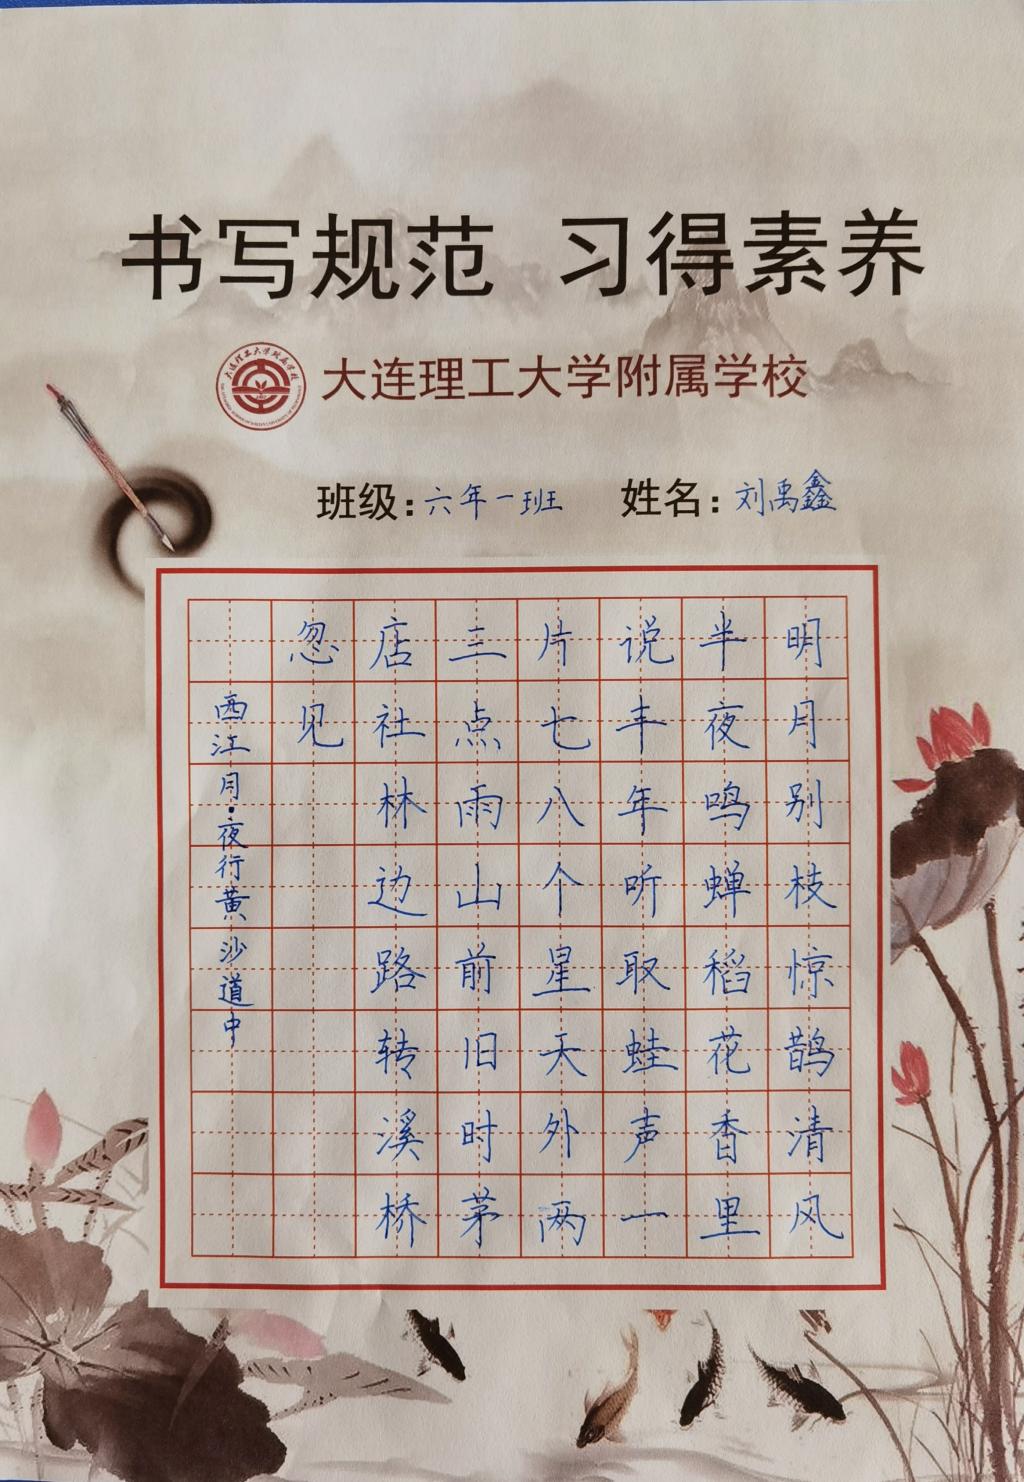 书写规范 习得素养
大连理工大学附属学校
班级：六年一班 姓名：刘禹鑫
明月别枝惊鹊清风
半夜鸣蝉稻花香里
说丰年听取蛙声一
片七八个星天外两
三点雨山前旧时茅
店社林边路转溪桥
忽见
西江月·夜行黄沙道中